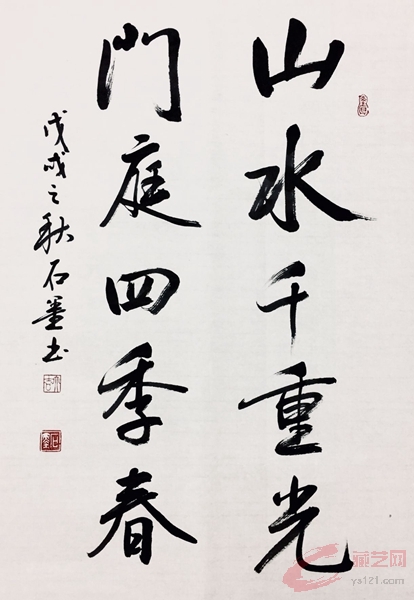 山水千重光
門庭四季春
戊戌之秋石墨书
藏艺网
ys121.com